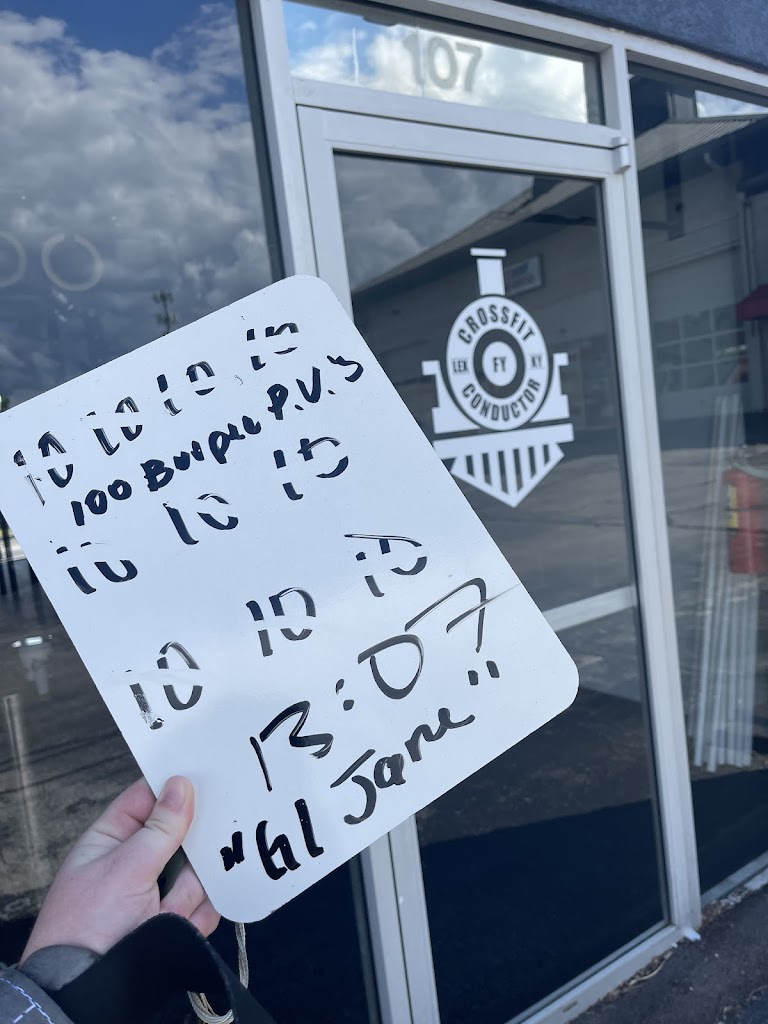 107
CROSSFIT
LEX FY KY.
CONDUCTOR
10 10 10 10
100 Burpee P.U.'s
10 10 10
10 10 10
13:07
"GI Jane"